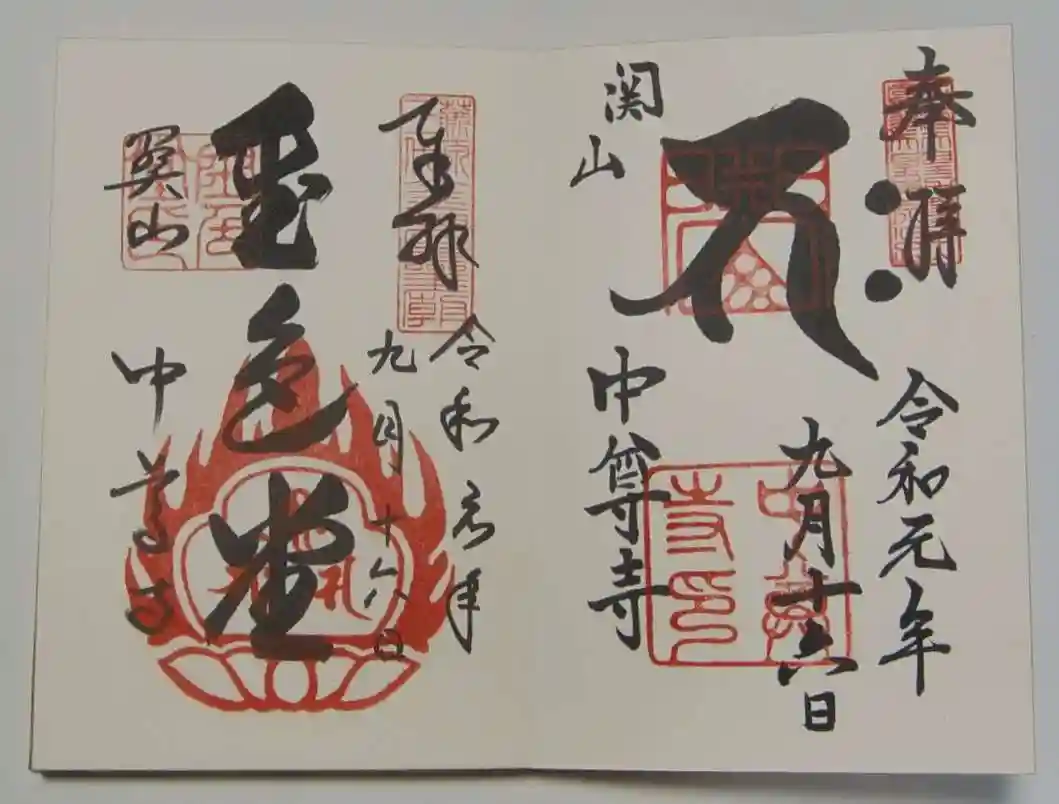 奉拝
令和元年
九月十六日
関山
中尊寺
中尊寺印
奉拝
令和元年
九月十六日
金色堂
関山
中尊寺